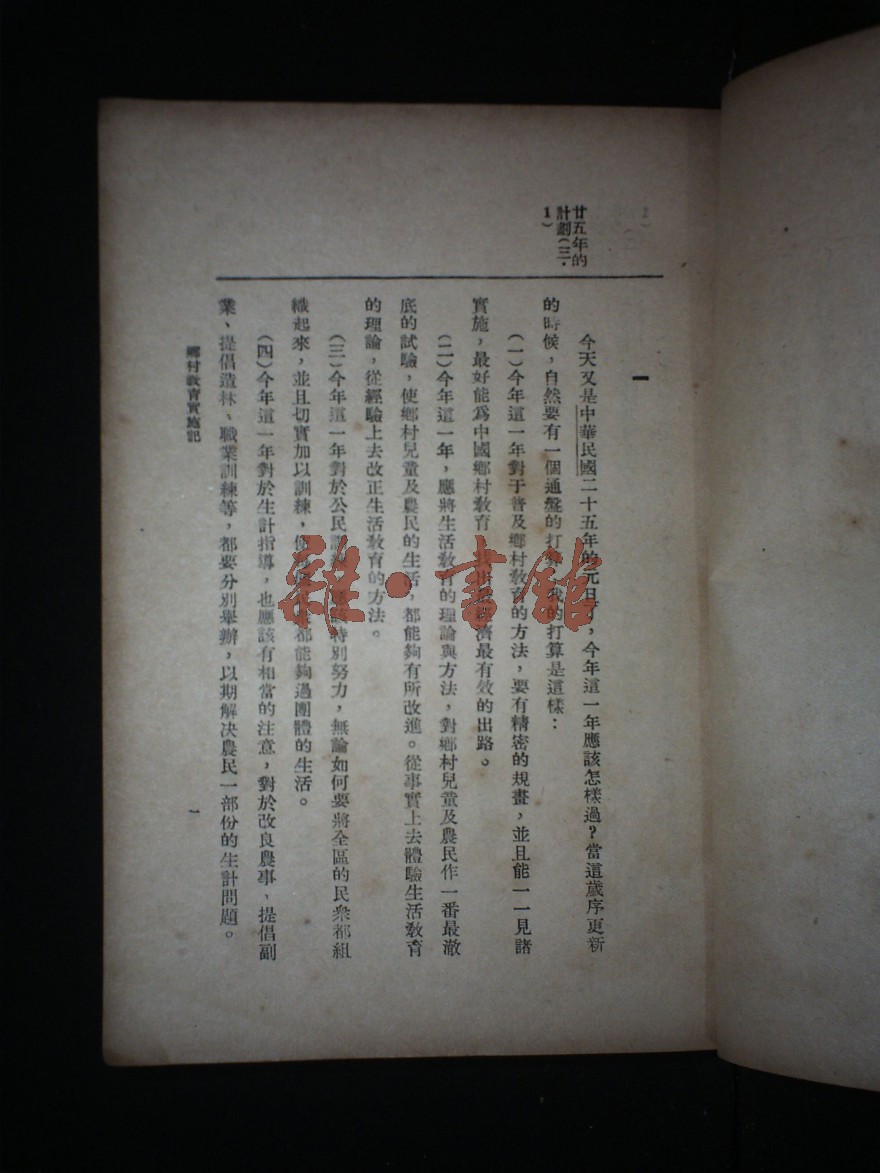 廿五年的
計劃(三・
1)
一
今天又是中華民國二十五年的元日了，今年這一年應該怎樣過？當這歲序更新
的時候，自然要有一個通盤的打算，我的打算是這樣：
(一)今年這一年對于普及鄉村教育的方法，要有精密的規畫，並且能一一見諸
實施，最好能爲中國鄉村教育，找出最經濟最有效的出路。
(二)今年這一年，應將生活教育的理論與方法，對鄉村兒童及農民作一番最澈
底的試驗，使鄉村兒童及農民的生活，都能夠有所改進。從事實上去體驗生活教育
的理論，從經驗上去改正生活教育的方法。
(三)今年這一年對於公民訓練，應該特別努力，無論如何要將全區的民衆都組
織起來，並且切實加以訓練，都能夠過團體的生活。
(四)今年這一年對於生計指導，也應該有相當的注意，對於改良農事、提倡副
業、提倡造林、職業訓練等，都要分別舉辦，以期解決農民一部份的生計問題。
鄉村教育實施記
一
雜·書館